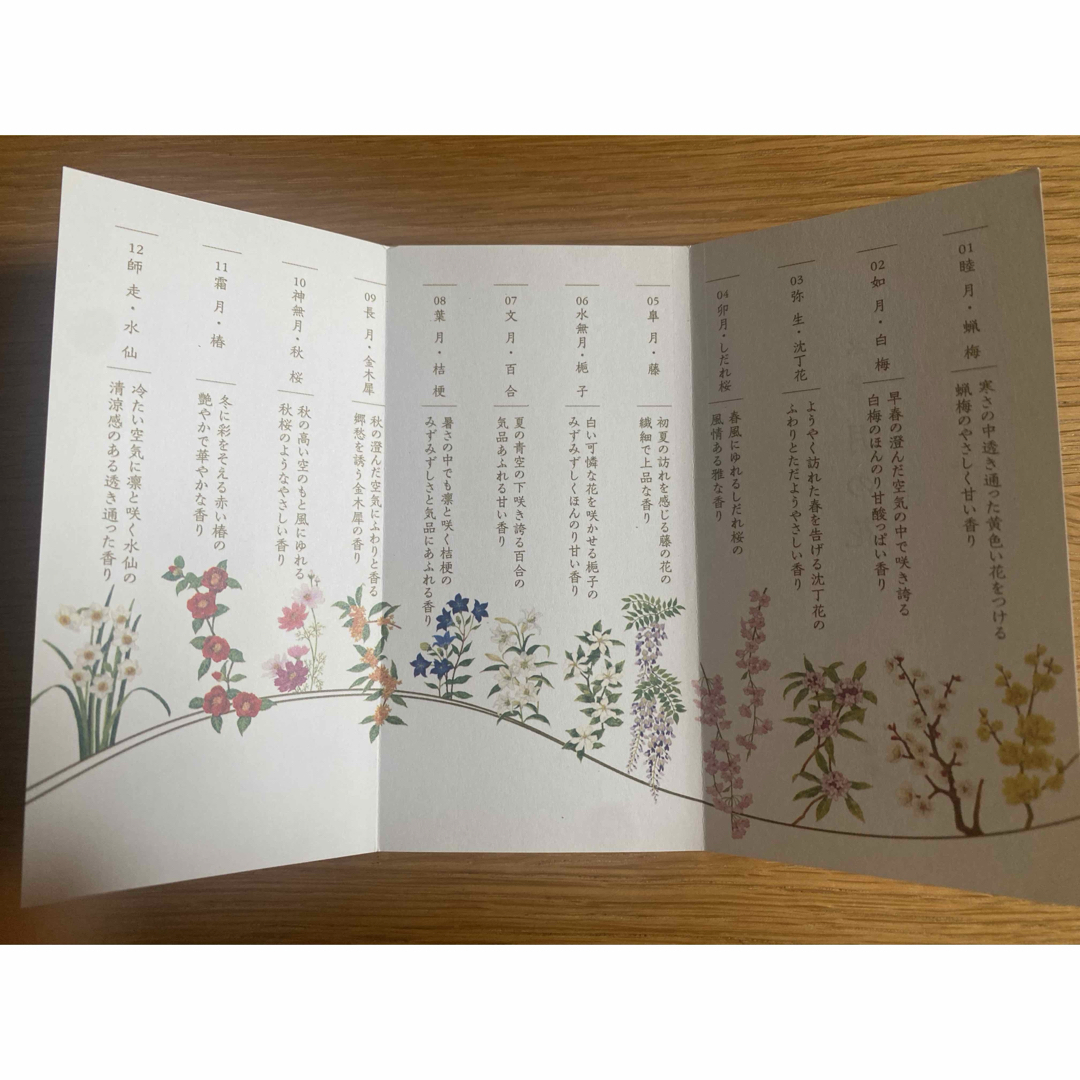 01 睦月・蝋梅
寒さの中透き通った黄色い花をつける
蝋梅のやさしく甘い香り
02 如月・白梅
早春の澄んだ空気の中で咲き誇る
白梅のほんのり甘酸っぱい香り
03 弥生・沈丁花
ようやく訪れた春を告げる沈丁花の
ふわりとただようやさしい香り
04 卯月・しだれ桜
春風にゆれるしだれ桜の
風情ある雅な香り
05 皐月・藤
初夏の訪れを感じる藤の花の
繊細で上品な香り
06 水無月・梔子
白い可憐な花を咲かせる梔子の
みずみずしくほんのり甘い香り
07 文月・百合
夏の青空の下咲き誇る百合の
気品あふれる甘い香り
08 葉月・桔梗
暑さの中でも凛と咲く桔梗の
みずみずしさと気品にあふれる香り
09 長月・金木犀
秋の澄んだ空気にふわりと香る
郷愁を誘う金木犀の香り
10 神無月・秋桜
秋の高い空のもと風にゆれる
秋桜のようなやさしい香り
11 霜月・椿
冬に彩をそえる赤い椿の
艶やかで華やかな香り
12 師走・水仙
冷たい空気に凛と咲く水仙の
清涼感のある透き通った香り